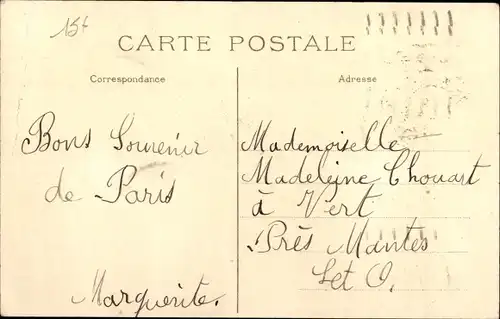 15c
CARTE POSTALE
Correspondance
Adresse
Bons Souvenir
de Paris
Marguerite.
Mademoiselle
Madeleine Chouart
à Vert
Près Mantes
Set O.